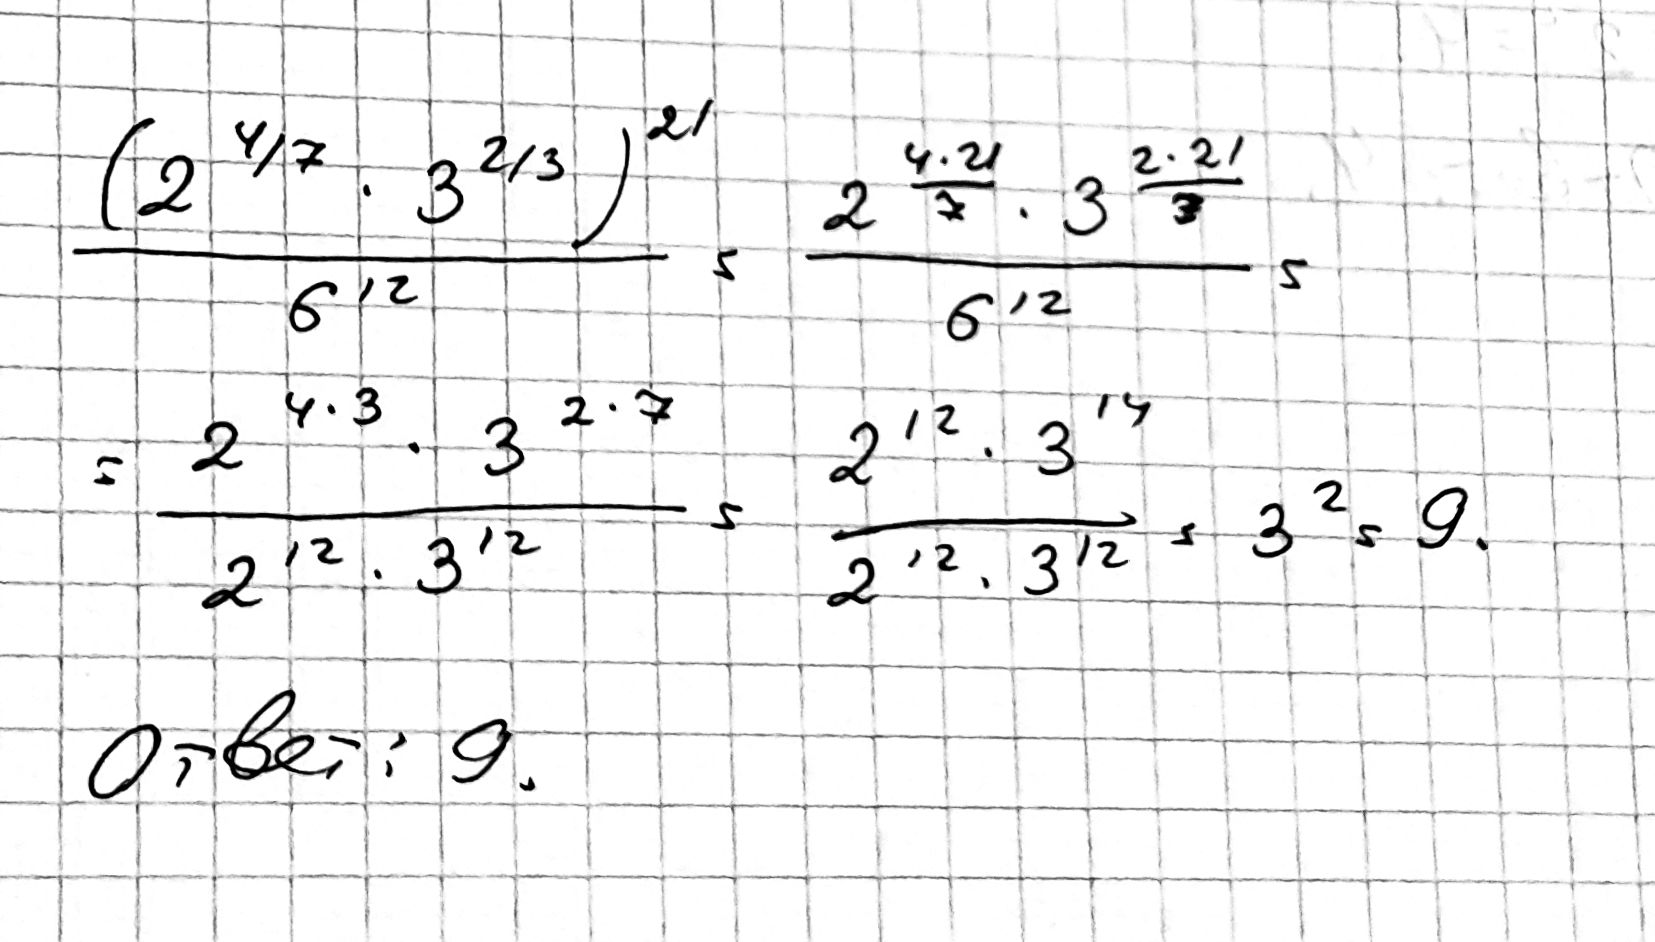 (2^{4/7} · 3^{2/3})^{21} / 6^{12} = 2^{\frac{4·21}{7}} · 3^{\frac{2·21}{3}} / 6^{12} =
= 2^{4·3} · 3^{2·7} / 2^{12} · 3^{12} = 2^{12} · 3^{14} / 2^{12} · 3^{12} = 3^2 = 9.
Ответ: 9.